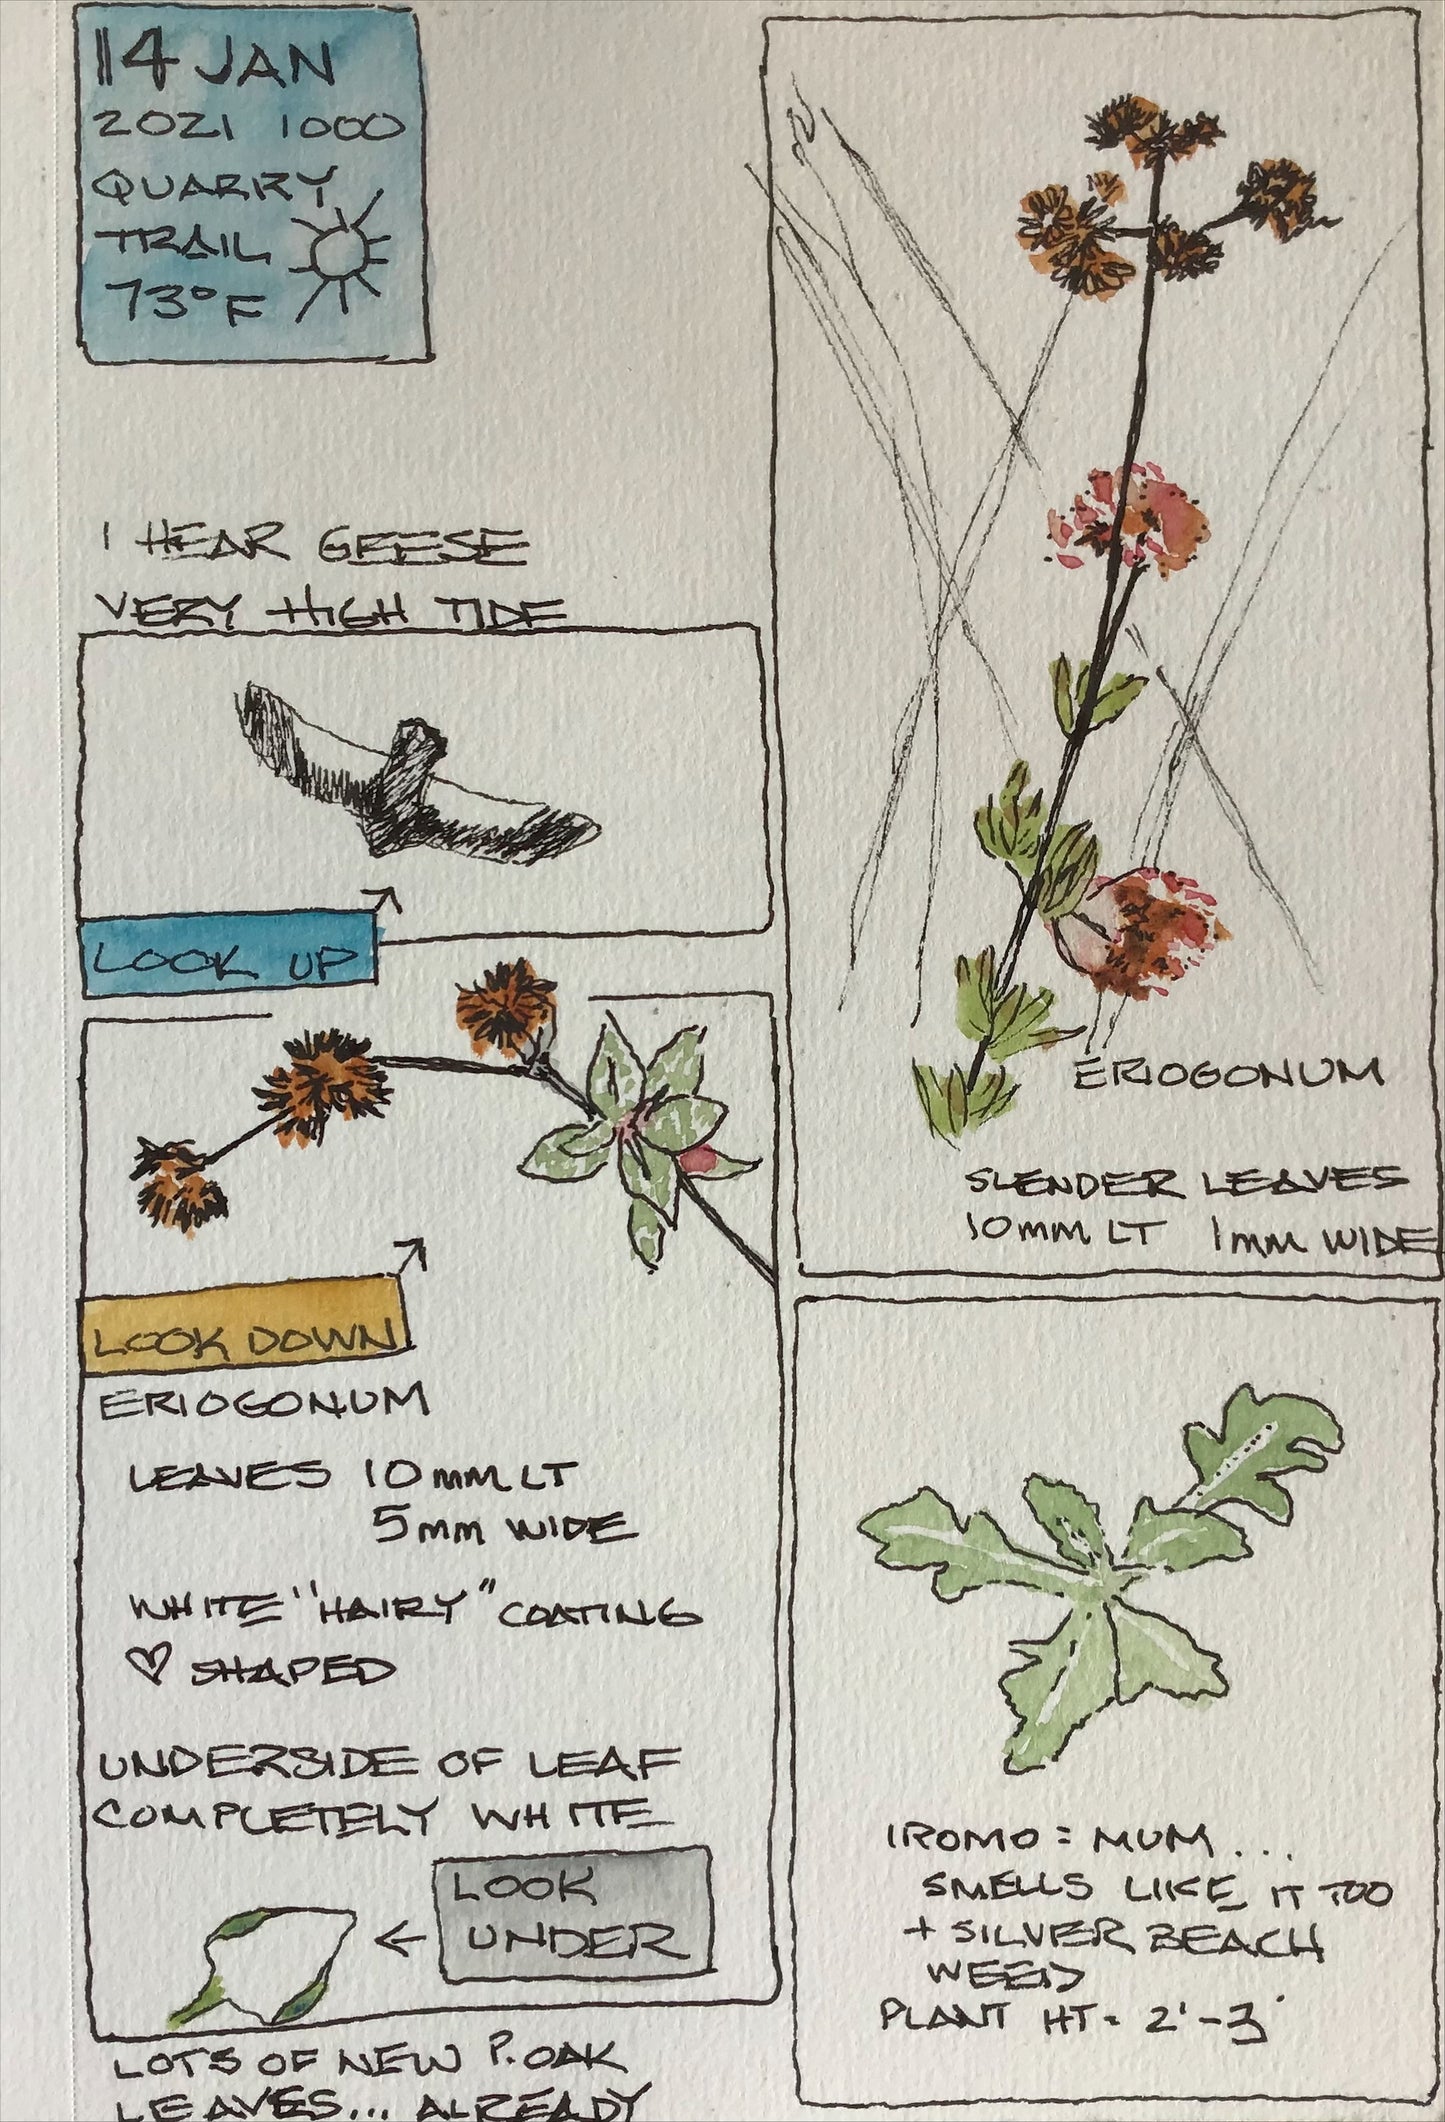 14 JAN
2021 1000
QUARRY
TRAIL
73°F
I HEAR GEESE
VERY HIGH TIDE
LOOK UP
LOOK DOWN
ERIOGONUM
LEAVES 10mm LT
5mm WIDE
WHITE "HAIRY" COATING
♡ SHAPED
UNDERSIDE OF LEAF
COMPLETELY WHITE
LOOK
UNDER
LOTS OF NEW P. OAK
LEAVES... ALREADY
ERIOGONUM
SLENDER LEAVES
10mm LT 1mm WIDE
IROMO = MUM...
SMELLS LIKE IT TOO
+ SILVER BEACH
WEED
PLANT HT = 2'-3'